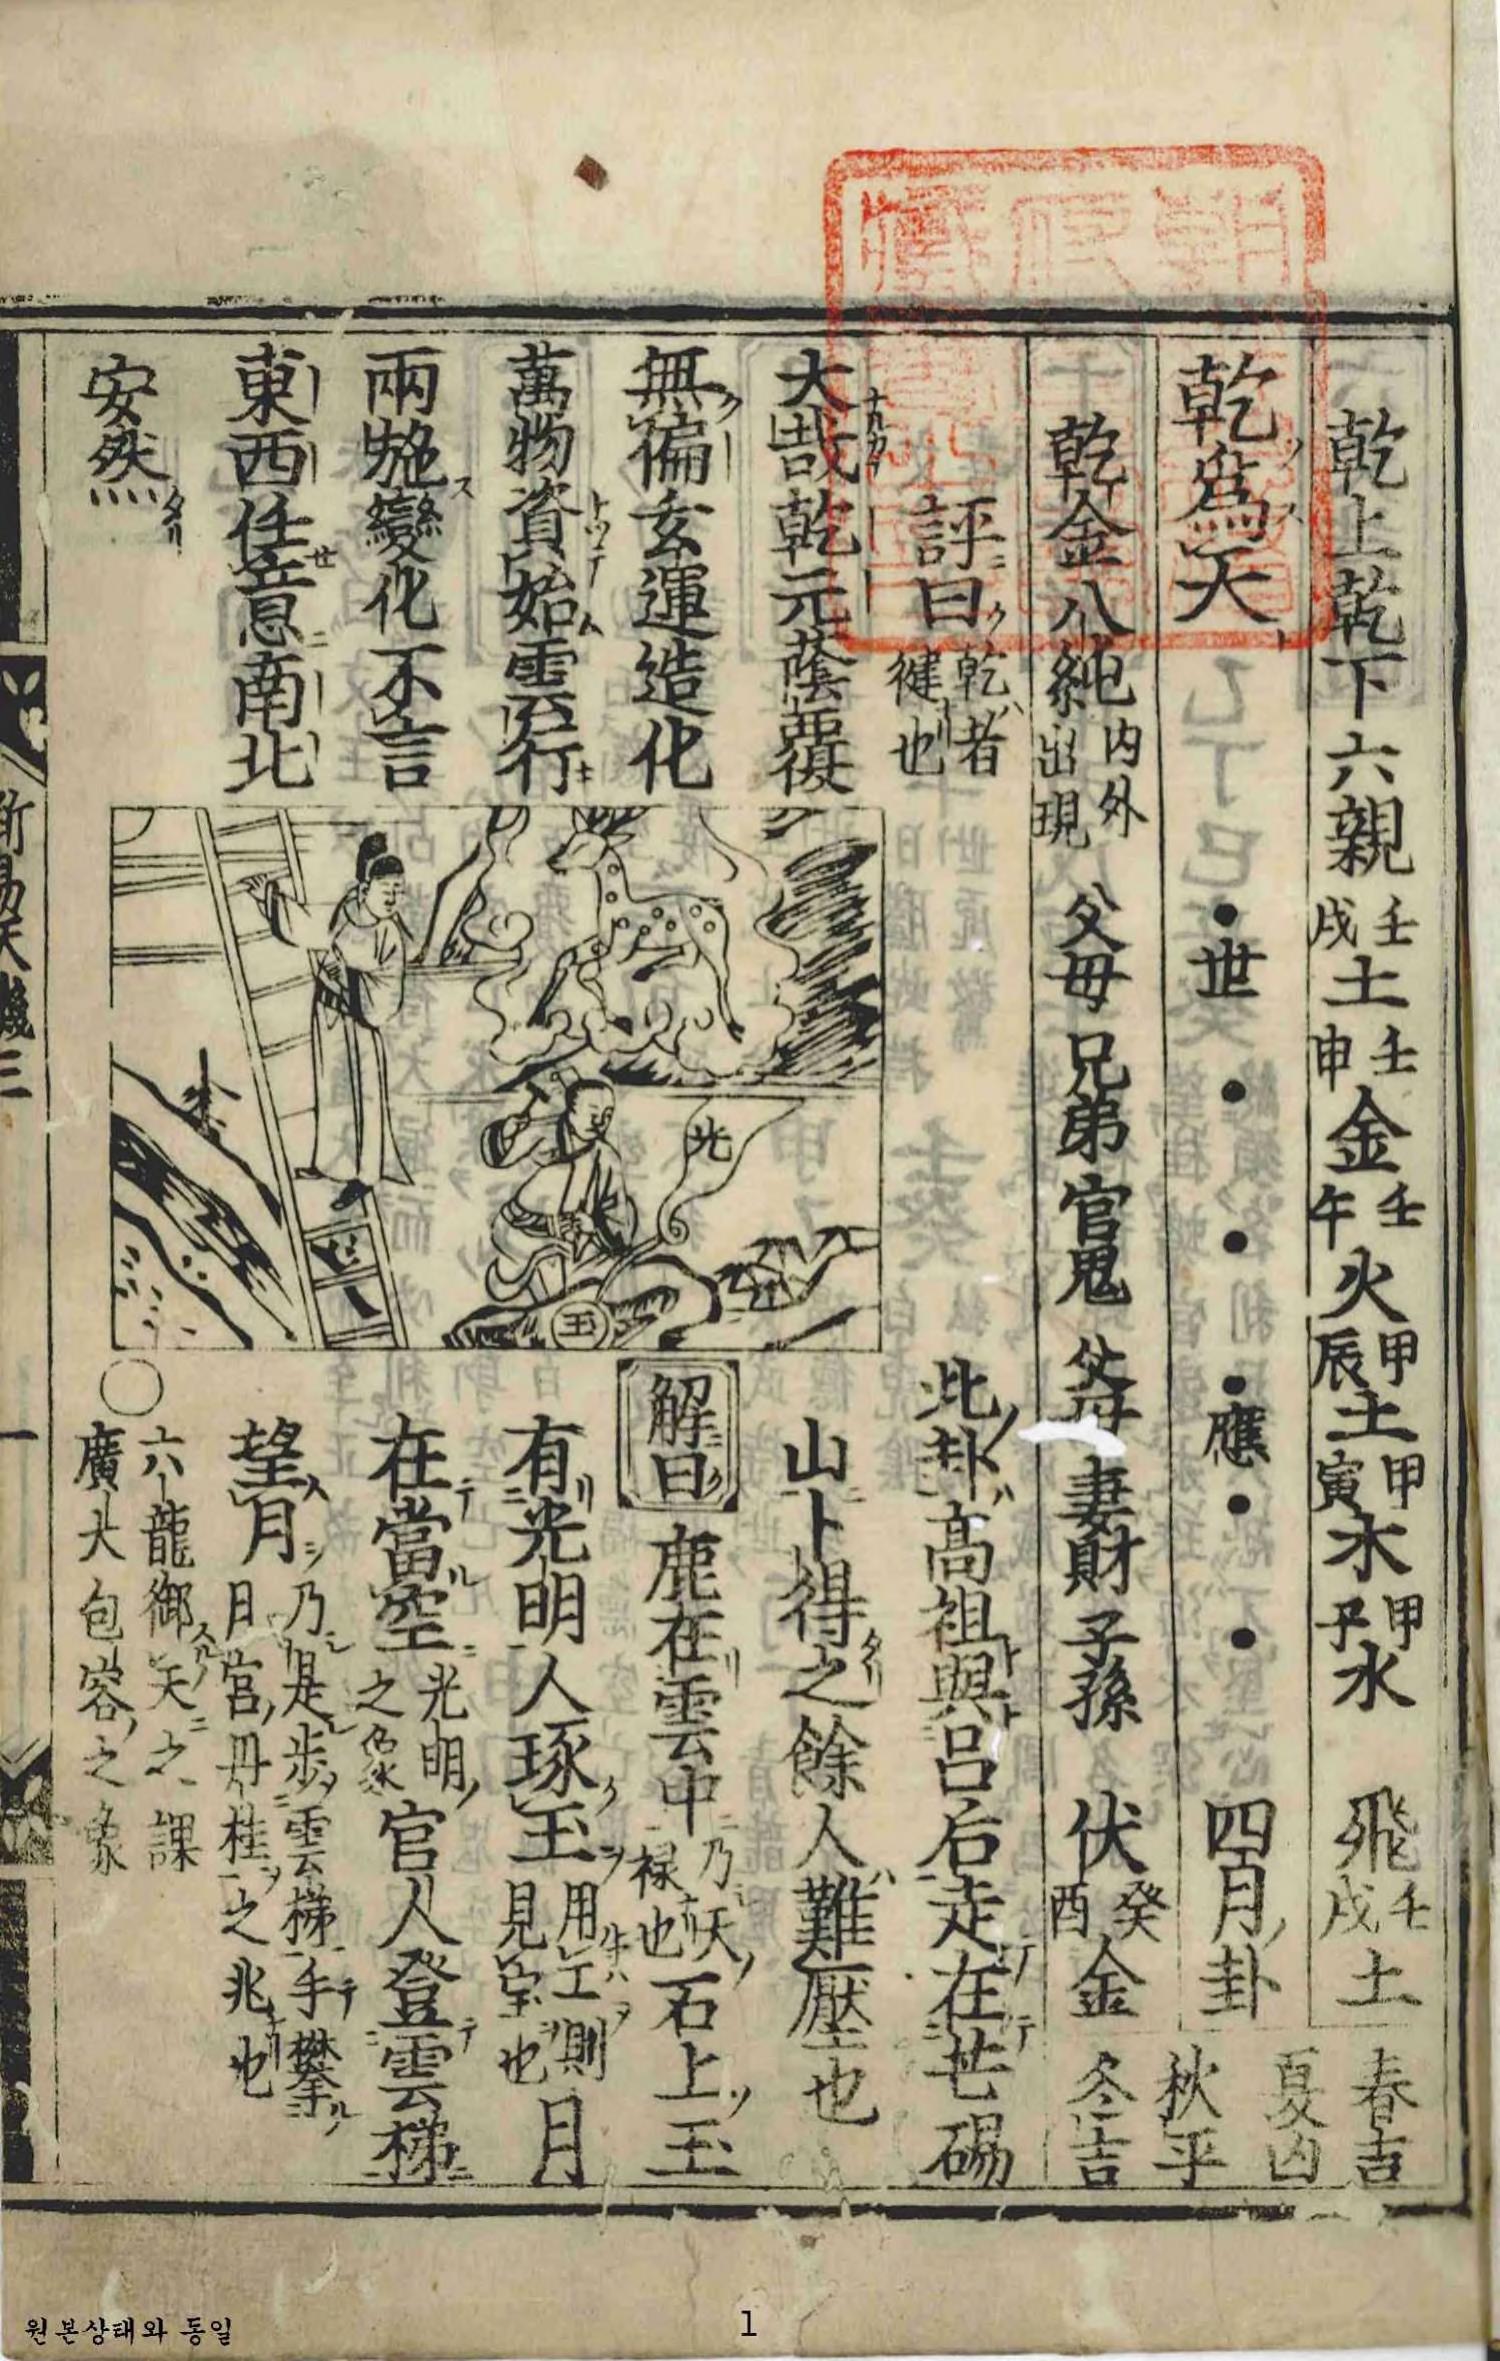 乾上乾下六親壬戌土壬申金壬午火甲辰土甲寅木甲子水 飛壬戌土 春吉
乾爲天 世 應 四月卦 夏凶
乾金八純內外出現 父母 兄弟 官鬼 父母 妻財 子孫 伏癸酉金 秋平 冬吉
評曰乾者健也
大哉乾元蔭覆
無偏玄運造化
萬物資始雲行
雨施變化不言
東西任意南北
安然
此卦高祖與呂后走在芒碭
山卜得之餘人難壓也
解曰 鹿在雲中乃天祿也石上玉
有光明人琢玉用工則見宝也月
在當空光明之象官人登雲梯
望月乃是步雲梯手攀月宮丹桂之兆也
○六龍御天之課
廣大包容之象
光
玉
斷易天機三
一
원본상태와 동일
1